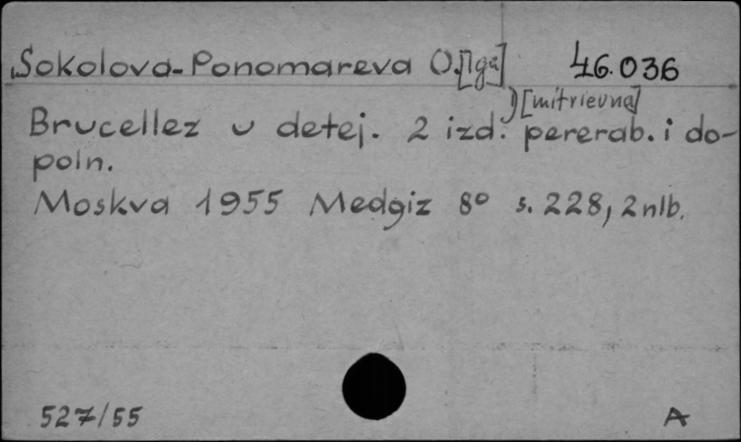 Sokolova-Ponomareva O.[lga] 46.036
D[mitrievna]
Brucellez u detej. 2 izd. pererab. i do-
poln.
Moskva 1955 Medgiz 8° s. 228, 2nlb.
527/55 A